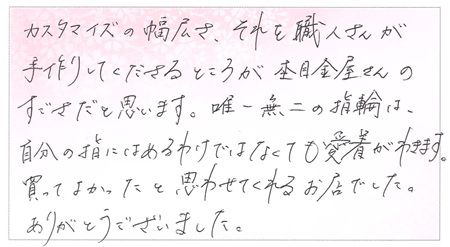 カスタマイズの幅広さ、それを職人さんが
手作りしてくださるところが杢目金屋さんの
すごさだと思います。唯一無二の指輪は、
自分の指にはめるわけではなくても愛着がわきます。
買ってよかったと思わせてくれるお店でした。
ありがとうございました。